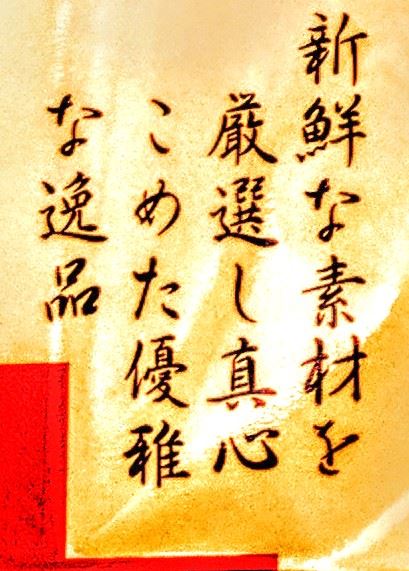 新鮮な素材を
厳選し真心
こめた優雅
な逸品